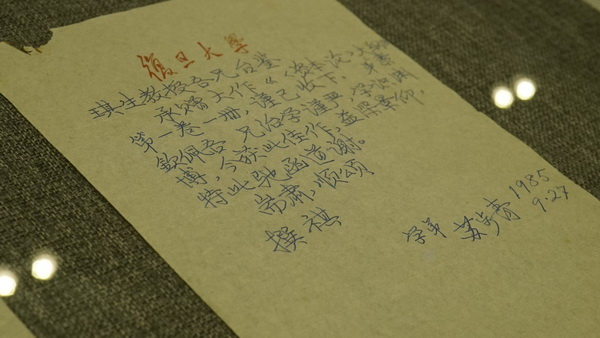 復旦大學
琪生教授吾兄台鉴
承赠大作《 论》
第一卷一册，谨已收下。弟素
钦佩吾兄治学谨严，学识渊
博，今获此佳作，益深景仰，
特此驰函道谢。
耑肃，顺颂
撰祺
学弟 苏步青 1985
9.27